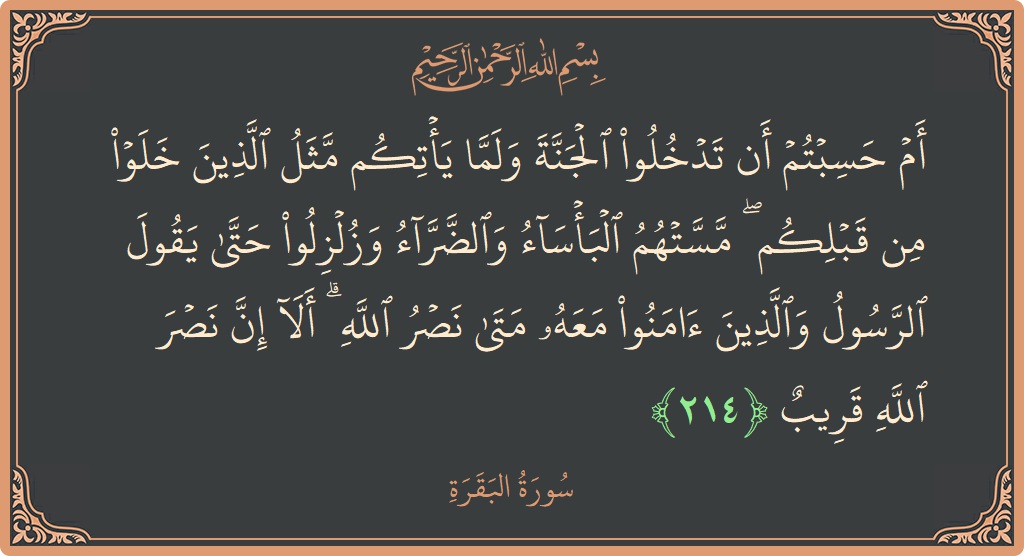 بِسْمِ اللهِ الرَّحْمٰنِ الرَّحِيْمِ
أَمۡ حَسِبۡتُمۡ أَن تَدۡخُلُواْ ٱلۡجَنَّةَ وَلَمَّا يَأۡتِكُم مَّثَلُ ٱلَّذِينَ خَلَوۡاْ
مِن قَبۡلِكُمۖ مَّسَّتۡهُمُ ٱلۡبَأۡسَآءُ وَٱلضَّرَّآءُ وَزُلۡزِلُواْ حَتَّىٰ يَقُولَ
ٱلرَّسُولُ وَٱلَّذِينَ ءَامَنُواْ مَعَهُۥ مَتَىٰ نَصۡرُ ٱللَّهِۗ أَلَآ إِنَّ نَصۡرَ
ٱللَّهِ قَرِيبٌ ﴿٢١٤﴾
سُورَةُ البَقَرَةِ